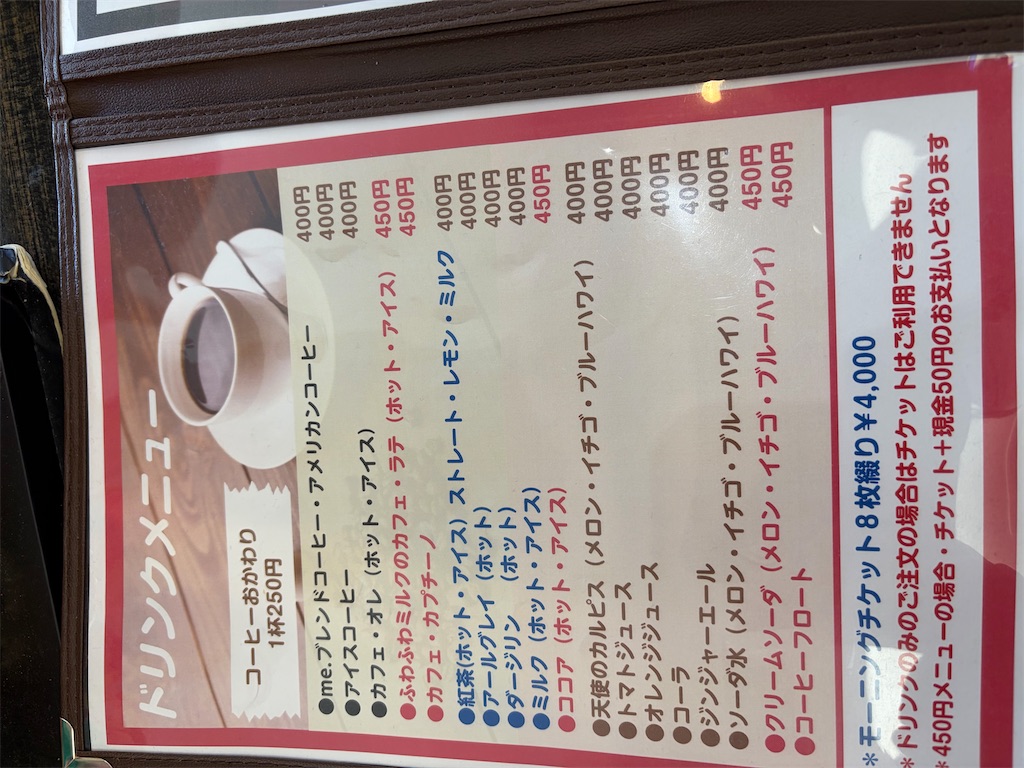 ドリンクメニュー
コーヒーおかわり
1杯250円
●me.ブレンドコーヒー・アメリカンコーヒー 400円
●アイスコーヒー 400円
●カフェ・オレ（ホット・アイス） 400円
●ふわふわミルクのカフェ・ラテ（ホット・アイス） 450円
●カフェ・カプチーノ 450円
●紅茶(ホット・アイス) ストレート・レモン・ミルク 400円
●アールグレイ（ホット） 400円
●ダージリン（ホット） 400円
●ミルク（ホット・アイス） 400円
●ココア（ホット・アイス） 450円
●天使のカルピス（メロン・イチゴ・ブルーハワイ） 400円
●トマトジュース 400円
●オレンジジュース 400円
●コーラ 400円
●ジンジャーエール 400円
●ソーダ水（メロン・イチゴ・ブルーハワイ） 400円
●クリームソーダ（メロン・イチゴ・ブルーハワイ） 450円
●コーヒーフロート 450円
＊モーニングチケット８枚綴り￥4,000
＊ドリンクのみのご注文の場合はチケットはご利用できません
＊450円メニューの場合・チケット＋現金50円のお支払いとなります